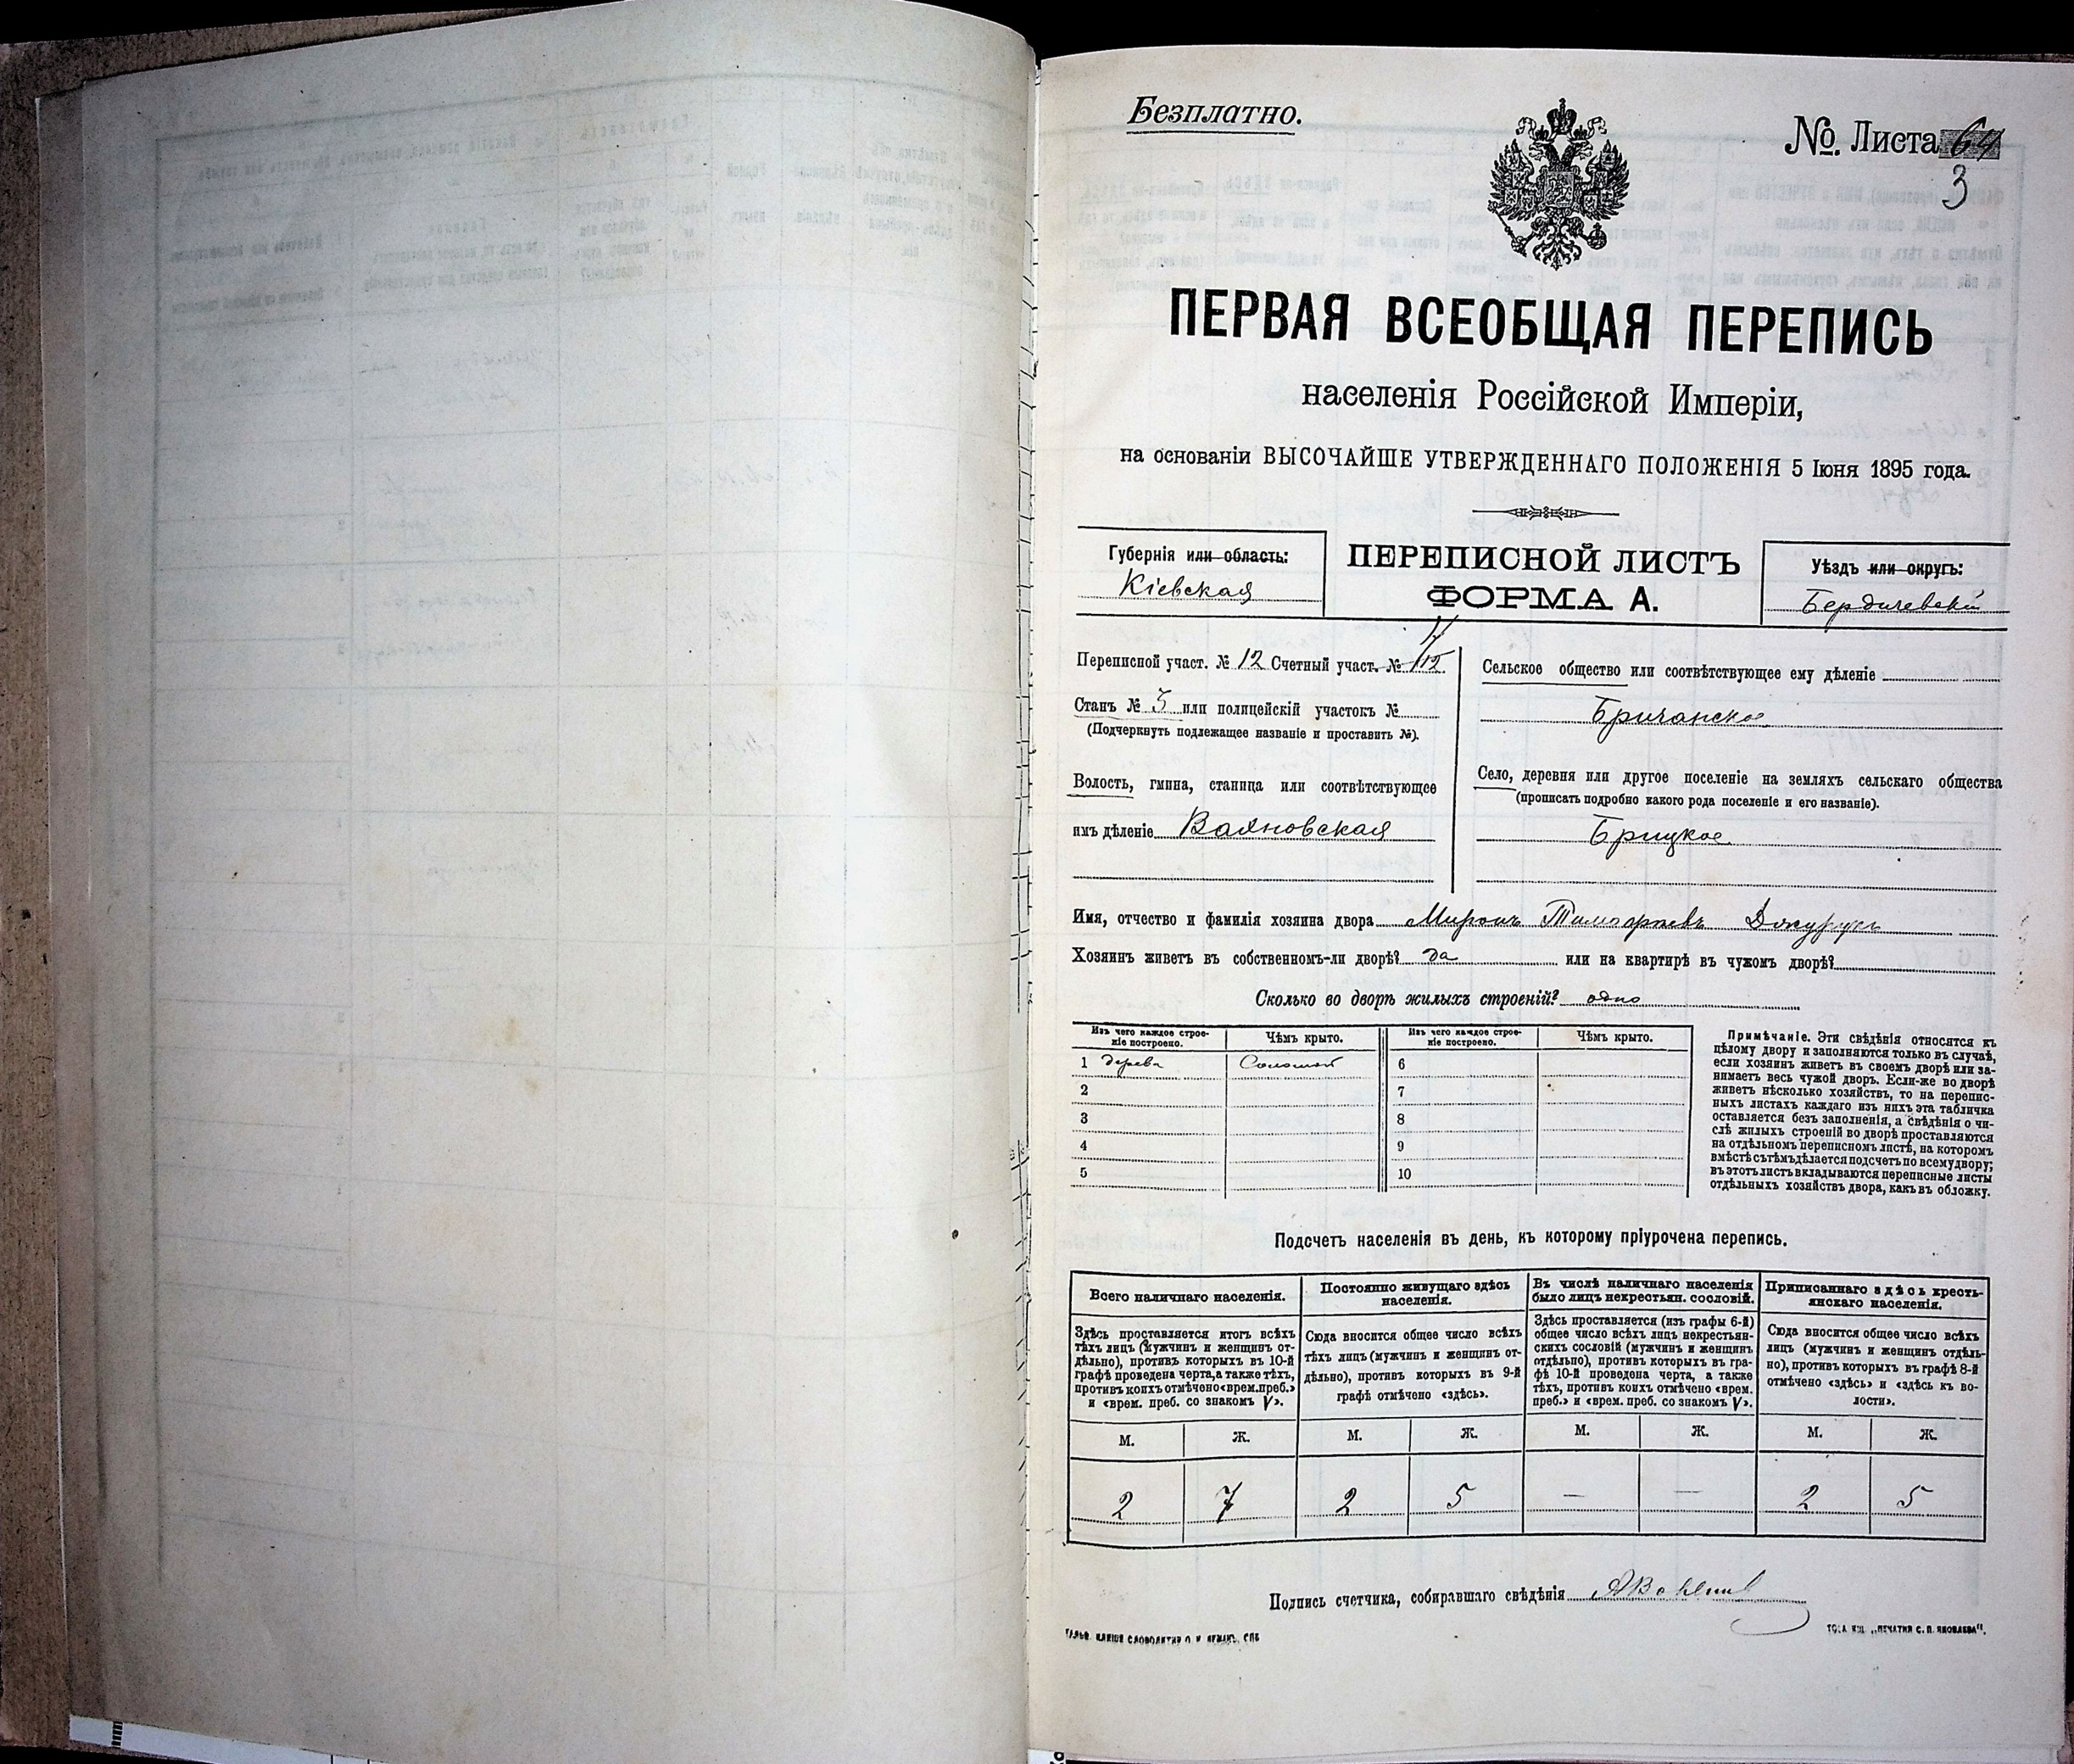 Безплатно.
№ Листа 64
3
ПЕРВАЯ ВСЕОБЩАЯ ПЕРЕПИСЬ
населенія Россійской Имперіи,
на основаніи ВЫСОЧАЙШЕ УТВЕРЖДЕННАГО ПОЛОЖЕНІЯ 5 Іюня 1895 года.
Губернія или область:
Кіевская
ПЕРЕПИСНОЙ ЛИСТЪ
ФОРМА А.
Уѣздъ или округъ:
Бердичевскій
Переписной участ. № 12 Счетный участ. №
Станъ № 3 или полицейскій участокъ №
(Подчеркнуть подлежащее названіе и проставить №).
Волость, гмина, станица или соотвѣтствующее
имъ дѣленіе Вахновская
Сельское общество или соотвѣтствующее ему дѣленіе
Бричанское
Село, деревня или другое поселеніе на земляхъ сельскаго общества
(прописать подробно какого рода поселеніе и его названіе).
Брицкое
Имя, отчество и фамилія хозяина двора Миронъ
Хозяинъ живетъ въ собственномъ-ли дворѣ? да или на квартирѣ въ чужомъ дворѣ?
Сколько во дворѣ жилыхъ строеній? одно
Изъ чего каждое строе-
ніе построено.
Чѣмъ крыто.
Изъ чего каждое строе-
ніе построено.
Чѣмъ крыто.
1 дерева Соломой 6
2 7
3 8
4 9
5 10
Примѣчаніе. Эти свѣдѣнія относятся къ
цѣлому двору и заполняются только въ случаѣ,
если хозяинъ живетъ въ своемъ дворѣ или за-
нимаетъ весь чужой дворъ. Если-же во дворѣ
живетъ нѣсколько хозяйствъ, то на перепис-
ныхъ листахъ каждаго изъ нихъ эта табличка
оставляется безъ заполненія, а свѣдѣнія о чи-
слѣ жилыхъ строеній во дворѣ проставляются
на отдѣльномъ переписномъ листѣ, на которомъ
вмѣстѣ съ тѣмъ дѣлается подсчетъ по всему двору;
въ этотъ листъ вкладываются переписные листы
отдѣльныхъ хозяйствъ двора, какъ въ обложку.
Подсчетъ населенія въ день, къ которому пріурочена перепись.
Всего наличнаго населенія.
Здѣсь проставляется итогъ всѣхъ
тѣхъ лицъ (мужчинъ и женщинъ от-
дѣльно), противъ которыхъ въ 10-й
графѣ проведена черта, а также тѣхъ,
противъ коихъ отмѣчено «врем. преб.»
и «врем. преб. со знакомъ V».
Постоянно живущаго здѣсь
населенія.
Сюда вносится общее число всѣхъ
тѣхъ лицъ (мужчинъ и женщинъ от-
дѣльно), противъ которыхъ въ 9-й
графѣ отмѣчено «здѣсь».
Въ числѣ наличнаго населенія
было лицъ некрестьян. сословій.
Здѣсь проставляется (изъ графы 6-й)
общее число всѣхъ лицъ некрестьян-
скихъ сословій (мужчинъ и женщинъ
отдѣльно), противъ которыхъ въ гра-
фѣ 10-й проведена черта, а также
тѣхъ, противъ коихъ отмѣчено «врем.
преб.» и «врем. преб. со знакомъ V».
Приписаннаго здѣсь кресть-
янскаго населенія.
Сюда вносится общее число всѣхъ
лицъ (мужчинъ и женщинъ отдѣль-
но), противъ которыхъ въ графѣ 8-й
отмѣчено «здѣсь» и «здѣсь къ во-
лости».
М. Ж. М. Ж. М. Ж. М. Ж.
2 7 2 5 — — 2 5
Подпись счетчика, собиравшаго свѣдѣнія